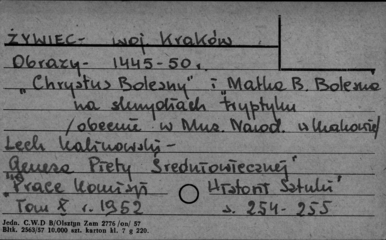 ŻYWIEC- woj Kraków
Obrazy- 1445-50 r.
"Chrystus Bolesny" i Matka B. Bolesna
na skrzydłach tryptyku
/obecnie w Muz. Narod. w Krakowie/
Lech Kalinowski-
Geneza Piety Średniowiecznej"
"Prace Komisji Historii Sztuki"
Tom X r. 1952 s. 254-255
Jedn. C.W.D B/Olsztyn Zam 2776/on/ 57
Bltk. 2563/57 10.000 szt. karton kl. 7 g 220.